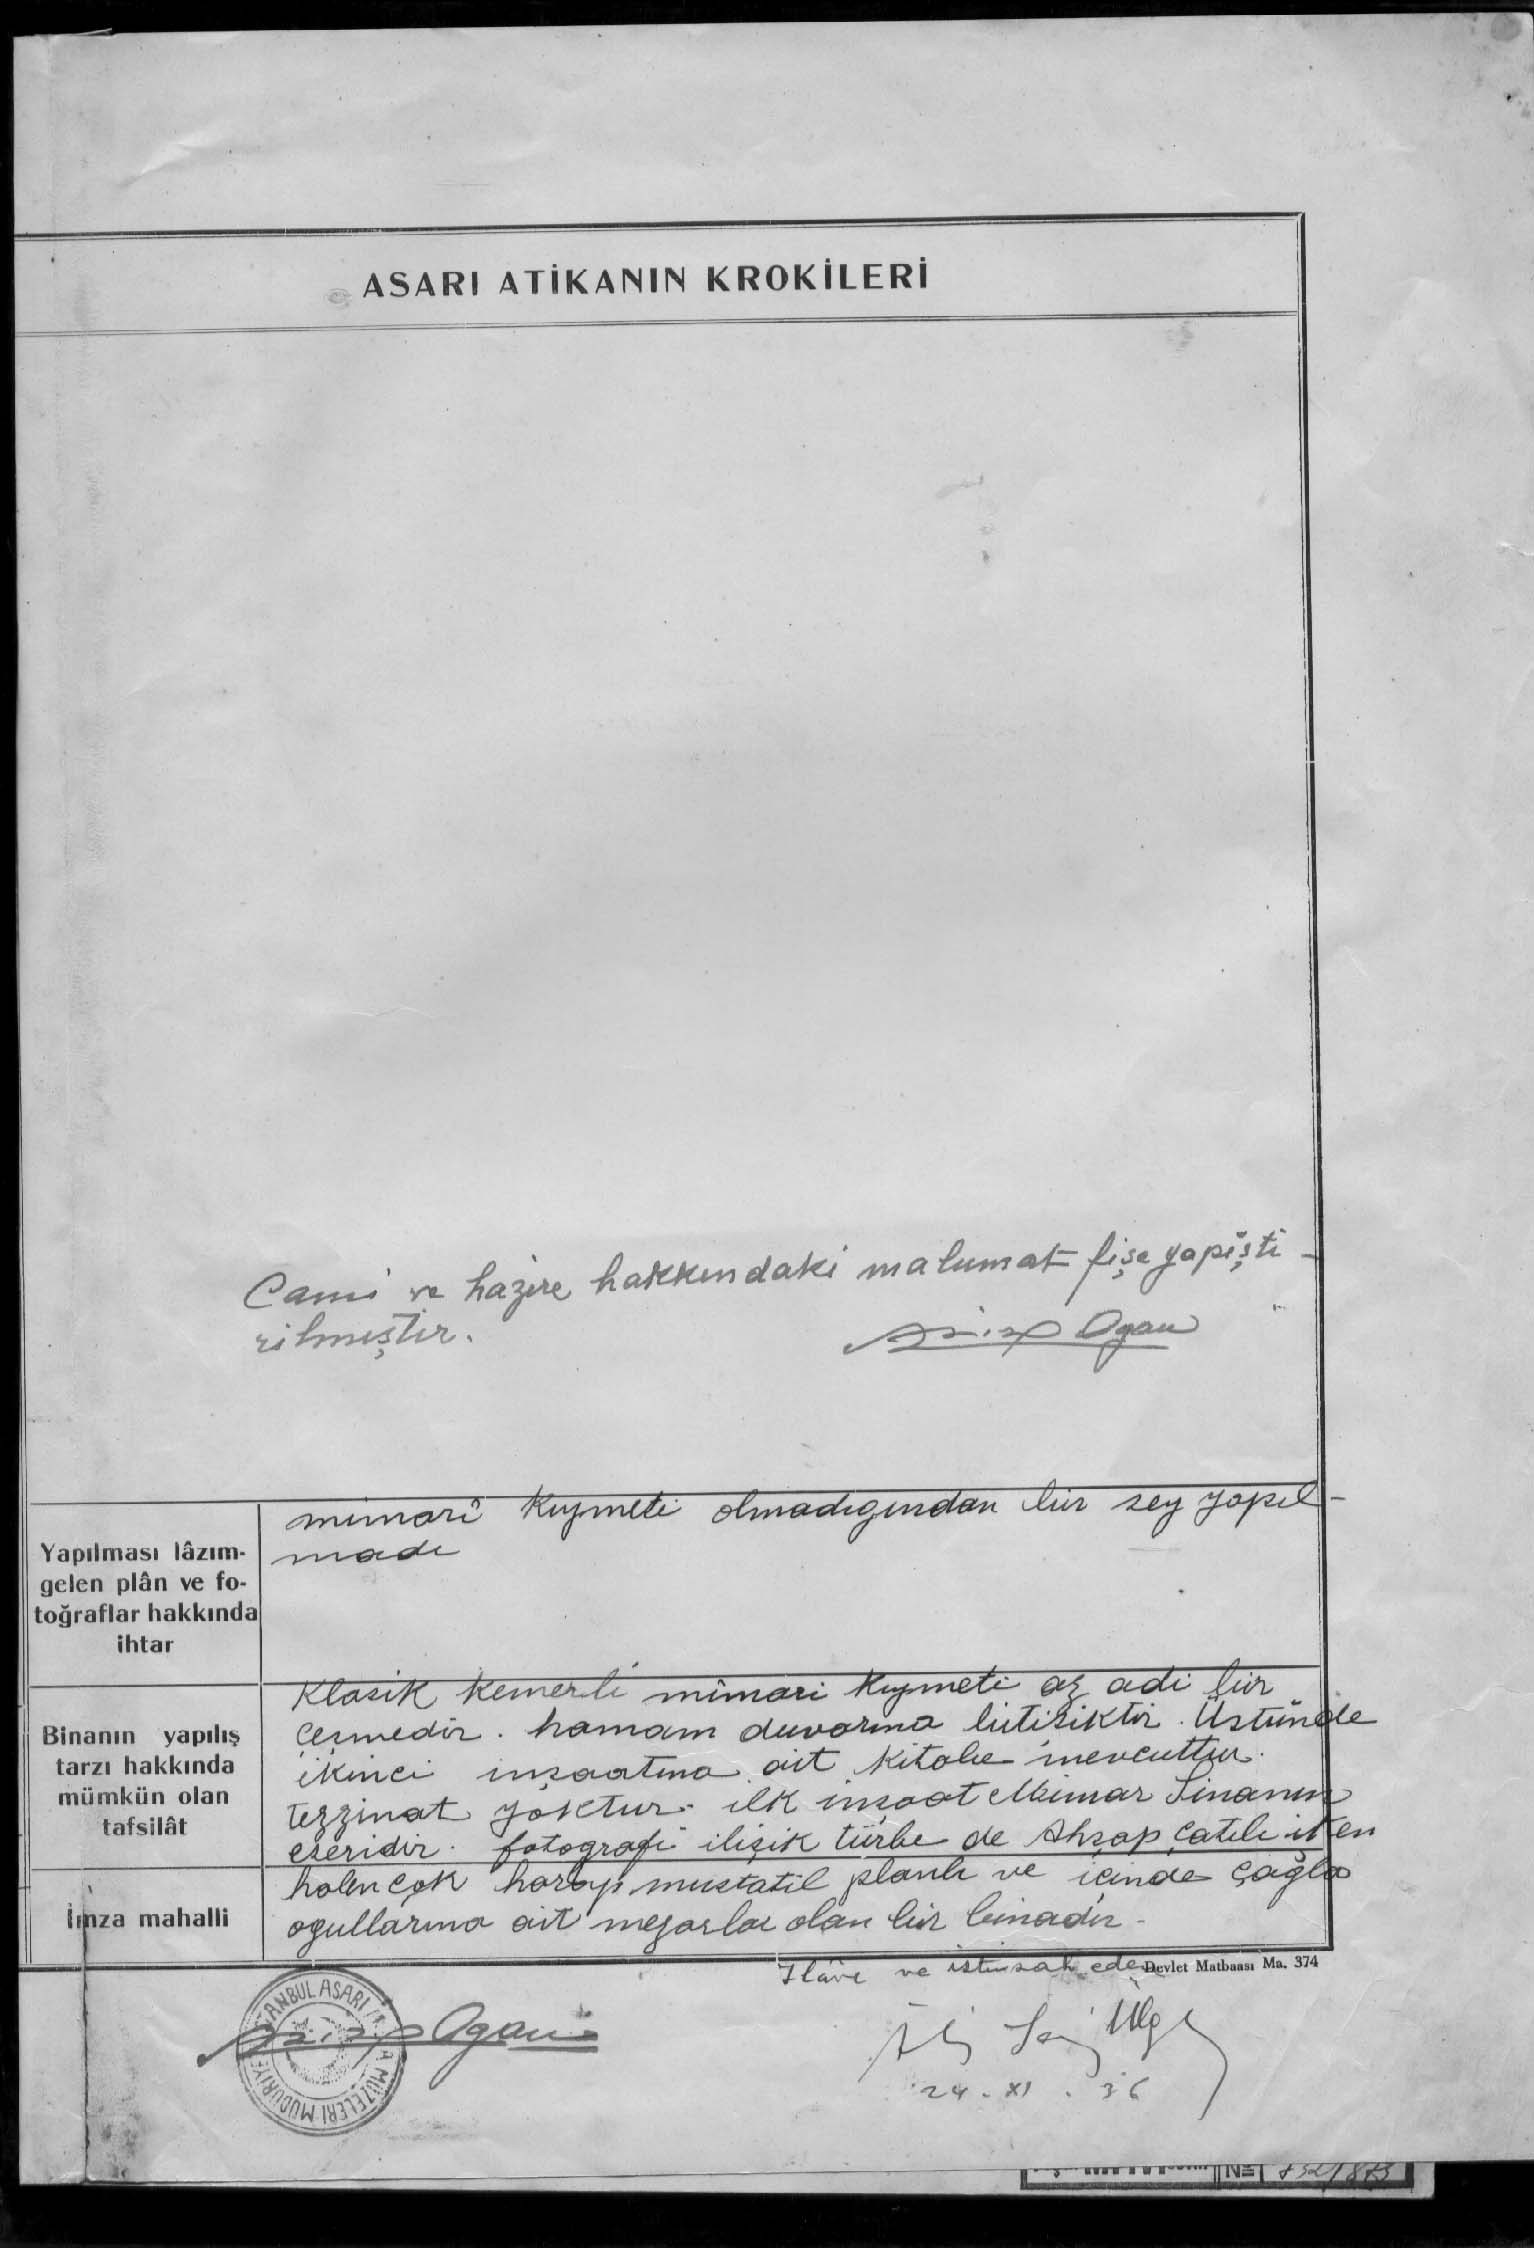 ASARI ATİKANIN KROKİLERİ
Cami ve hazire hakkındaki malumat fişe yapişti-
rilmıştır.
Aziz Ogan
Yapılması lâzım-
gelen plân ve fo-
toğraflar hakkında
ihtar
mimarî kıymeti olmadıgından bir sey yapıl-
madı
Binanın yapılış
tarzı hakkında
mümkün olan
tafsilât
Klasik kemerli mimari kıymeti az adi bir
çeşmedir. hamam duvarına bitişiktir. Üstünde
ikinci inşaatına ait kitabe mevcuttur.
tezzinat yoktur. ilk inşaat Mimar Sinanın
eseridir. fotografi ilişik türbe de Ahşap çatılı iken
İmza mahalli
halen çok harap mustatil planlı ve içinde çağla
ogullarına ait mezarlar olan bir binadır.
Devlet Matbaası Ma. 374
İlâve ve istinsah eden
İSTANBUL ASARI MÜZELERİ MÜDÜRİYE
Aziz Ogan
Ülgen
24. XI. 36
No